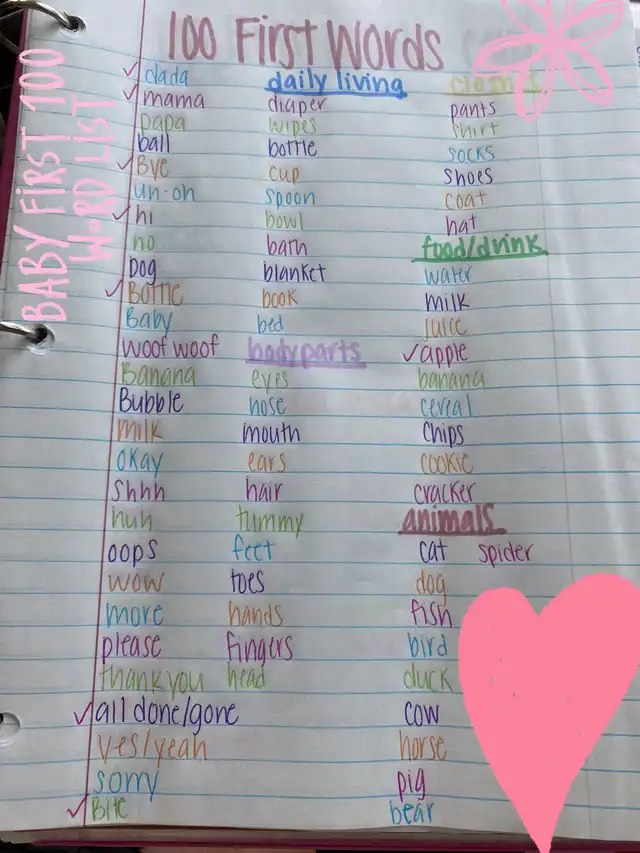 100 First Words
BABY FIRST 100
WORD LIST
dada
mama
papa
ball
Bye
un-oh
hi
no
Dog
Bottle
Baby
woof woof
Banana
Bubble
milk
okay
Shhh
huh
oops
wow
more
please
thank you
all done/gone
yes/yeah
sorry
Bite
daily living
diaper
wipes
bottle
cup
spoon
bowl
bath
blanket
book
bed
body parts
eyes
nose
mouth
ears
hair
tummy
feet
toes
hands
fingers
head
pants
shirt
socks
shoes
coat
hat
food/drink
water
milk
juice
apple
banana
cereal
chips
cookie
cracker
animals
cat spider
dog
fish
bird
duck
cow
horse
pig
bear